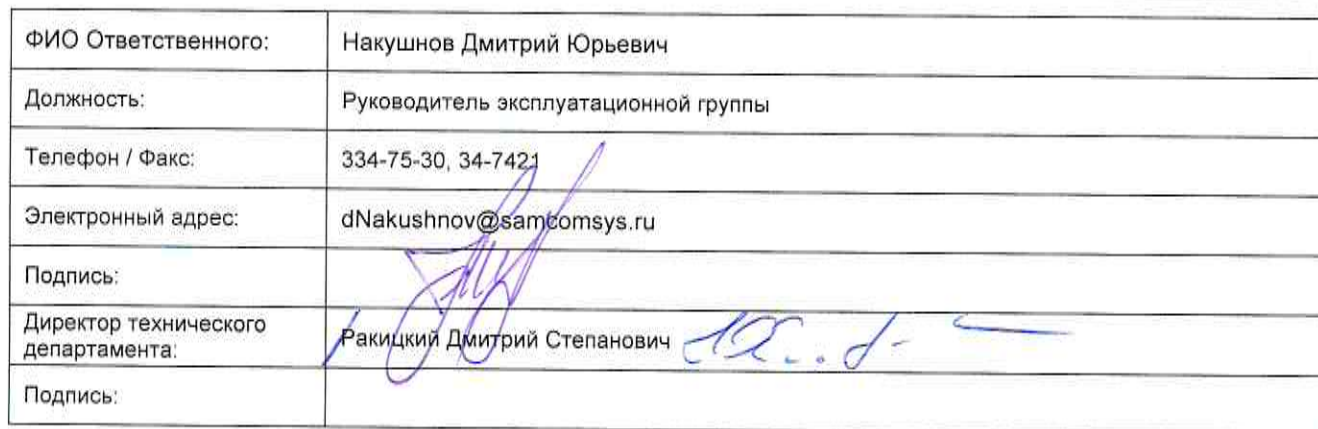 ФИО Ответственного: Накушнов Дмитрий Юрьевич
Должность: Руководитель эксплуатационной группы
Телефон / Факс: 334-75-30, 34-7421
Электронный адрес: dNakushnov@samcomsys.ru
Подпись:
Директор технического
департамента: Ракицкий Дмитрий Степанович
Подпись: